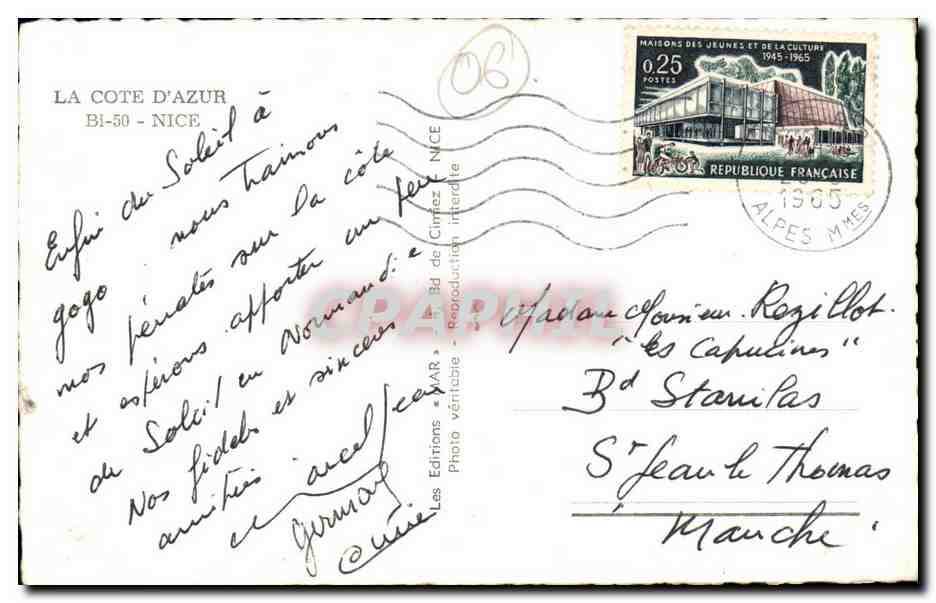 LA COTE D'AZUR
Bl-50 - NICE
Enfin du Soleil à
gogo. nous trainons
nos pénates sur la côte
et espérons apporter un peu
de Soleil en Normandie
Nos fidèles et sincères
amitiés
Marcel Jean
Germaine
Les Editions « MAR » Bd de Cimiez NICE
Photo véritable - Reproduction interdite
06
MAISONS DES JEUNES ET DE LA CULTURE
1945-1965
0,25
POSTES
REPUBLIQUE FRANÇAISE
1965
ALPES MMES
CPAPHIL
Madame Monsieur Rezillot.
"les Capucines"
Bd Stanilas
St Jean le Thomas
Manche